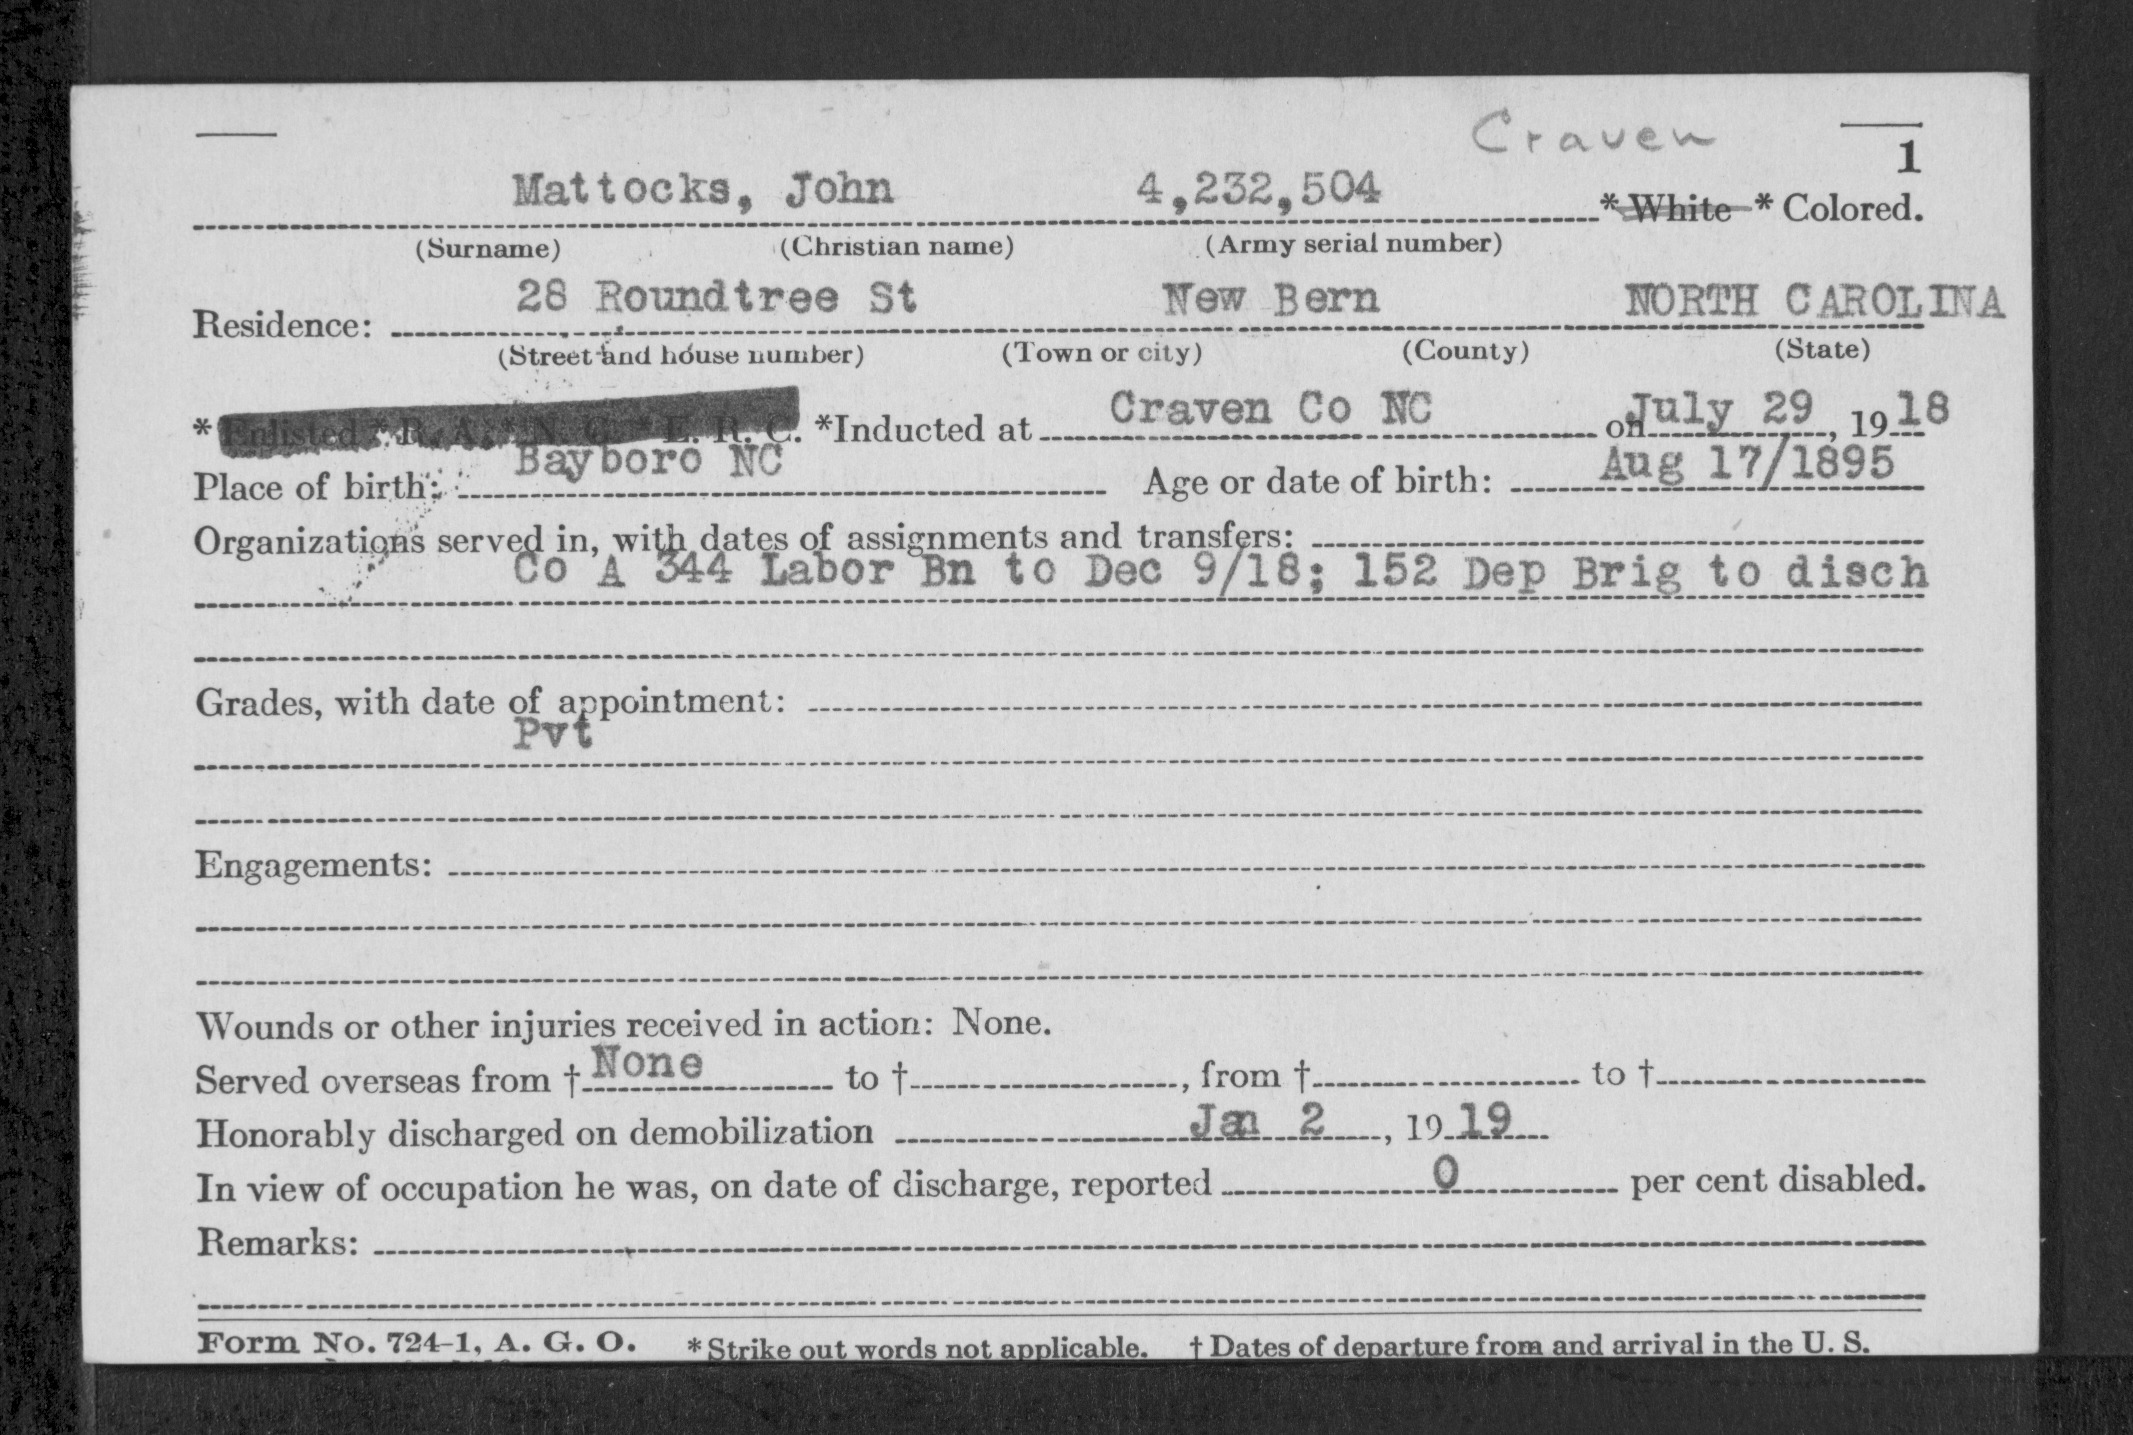 Craven
1
Mattocks, John 4,232,504 * White * Colored.
(Surname) (Christian name) (Army serial number)
Residence: 28 Roundtree St New Bern NORTH CAROLINA
(Street and house number) (Town or city) (County) (State)
* Enlisted * R. A. * N. G. * E. R. C. *Inducted at Craven Co NC on July 29, 1918
Place of birth: Bayboro NC Age or date of birth: Aug 17/1895
Organizations served in, with dates of assignments and transfers:
Co A 344 Labor Bn to Dec 9/18; 152 Dep Brig to disch
Grades, with date of appointment:
Pvt
Engagements:
Wounds or other injuries received in action: None.
Served overseas from † None to †, from † to †
Honorably discharged on demobilization Jan 2, 1919
In view of occupation he was, on date of discharge, reported 0 per cent disabled.
Remarks:
Form No. 724-1, A. G. O. *Strike out words not applicable. † Dates of departure from and arrival in the U. S.